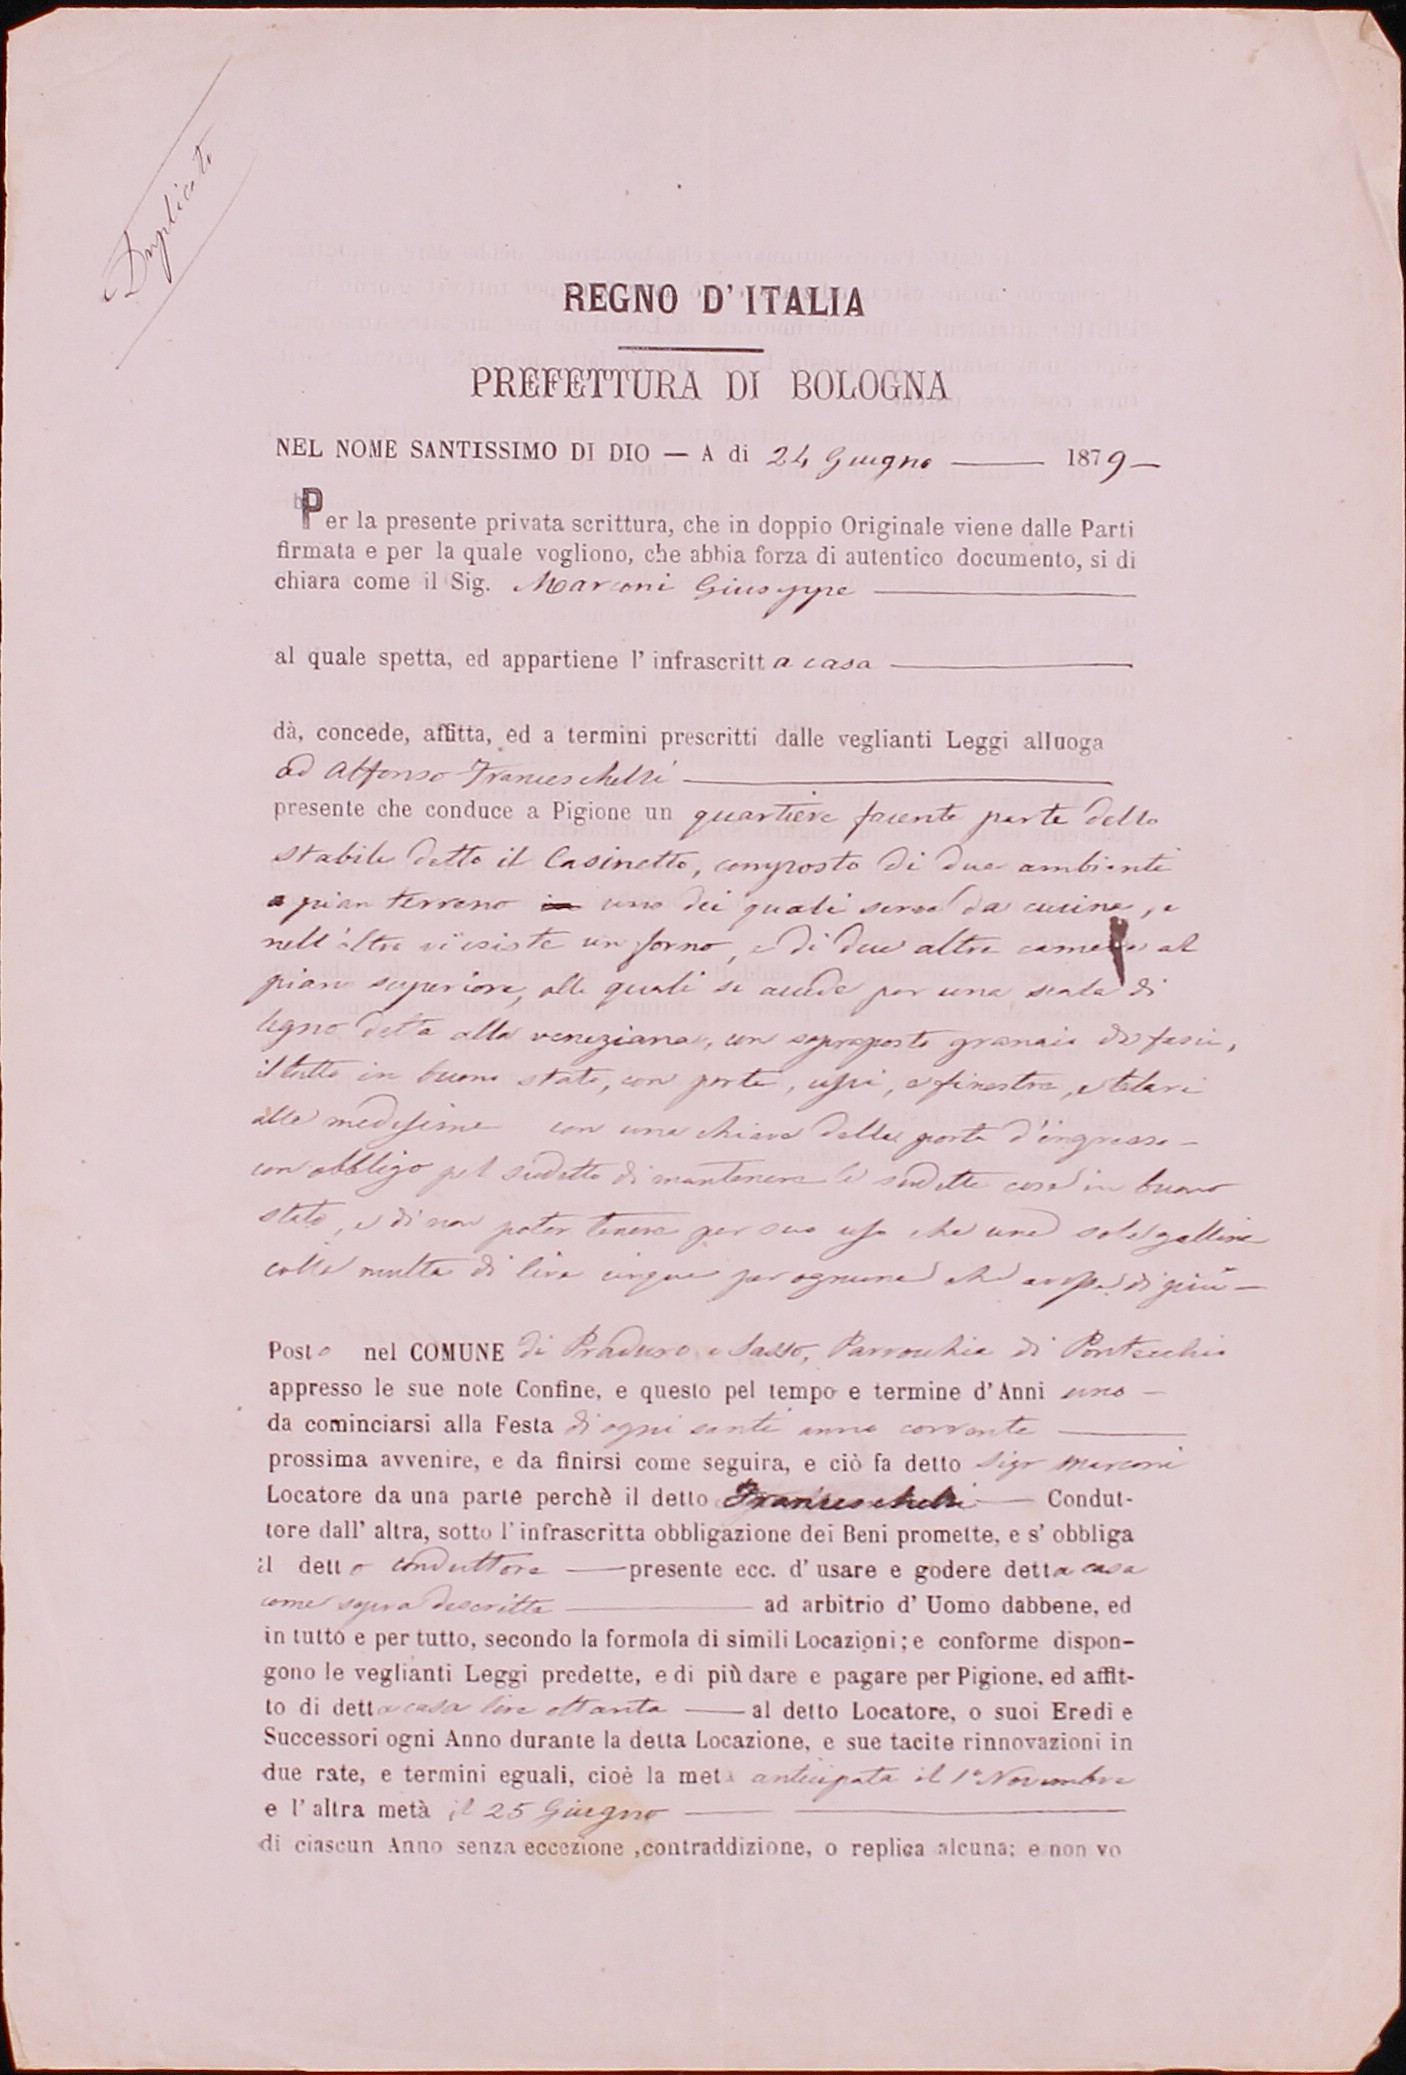 Duplicato
REGNO D'ITALIA
PREFETTURA DI BOLOGNA
NEL NOME SANTISSIMO DI DIO — A di 24 Giugno — 1879 —
Per la presente privata scrittura, che in doppio Originale viene dalle Parti
firmata e per la quale vogliono, che abbia forza di autentico documento, si di
chiara come il Sig. Marconi Giuseppe
al quale spetta, ed appartiene l' infrascritta casa
dà, concede, affitta, ed a termini prescritti dalle veglianti Leggi alluoga
ad Alfonso Franceschelli
presente che conduce a Pigione un quartiere facente parte dello
stabile detto il Casinetto, composto di due ambienti
a pian terreno uno dei quali serve da cucina, e
nell'altro vi esiste un forno, e di due altre camere al
piano superiore, alle quali si accede per una scala di
legno detta alla veneziana, un sopraposto granaio da fasci,
il tutto in buono stato, con porte, usci, e finestre, e telari
alle medesime con una chiave della porta d'ingresso —
con obbligo pel sudetto di mantenere le sudette cose in buono
stato, e di non poter tenere per suo uso che una sola gallina
colla multa di lire cinque per ognuna che avesse di più —
Posto nel COMUNE di Praduro e Sasso, Parrocchia di Pontecchio
appresso le sue note Confine, e questo pel tempo e termine d' Anni uno —
da cominciarsi alla Festa di ogni santi anno corrente
prossima avvenire, e da finirsi come seguira, e ciò fa detto Sigr Marconi
Locatore da una parte perchè il detto Franceschelli — Condut-
tore dall' altra, sotto l' infrascritta obbligazione dei Beni promette, e s' obbliga
il detto conduttore — presente ecc. d' usare e godere detta casa
come sopra descritta — ad arbitrio d' Uomo dabbene, ed
in tutto e per tutto, secondo la formola di simili Locazioni; e conforme dispon-
gono le veglianti Leggi predette, e di più dare e pagare per Pigione, ed affit-
to di detta casa lire ottanta — al detto Locatore, o suoi Eredi e
Successori ogni Anno durante la detta Locazione, e sue tacite rinnovazioni in
due rate, e termini eguali, cioè la metà anticipata il 1° Novembre
e l' altra metà il 25 Giugno —
di ciascun Anno senza eccezione, contraddizione, o replica alcuna; e non vo